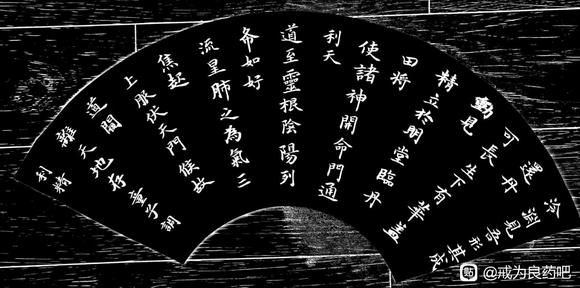 冷淵見吾其成
還丹
可長生下有華蓋
動見
精立於明堂臨丹
田將
使諸神開命門通
利天
道至靈根陰陽列
布如好
流星肺之為氣三
焦起
上服伏天門候故
道
離天地存童子調
利精
貼 @戒为良药吧